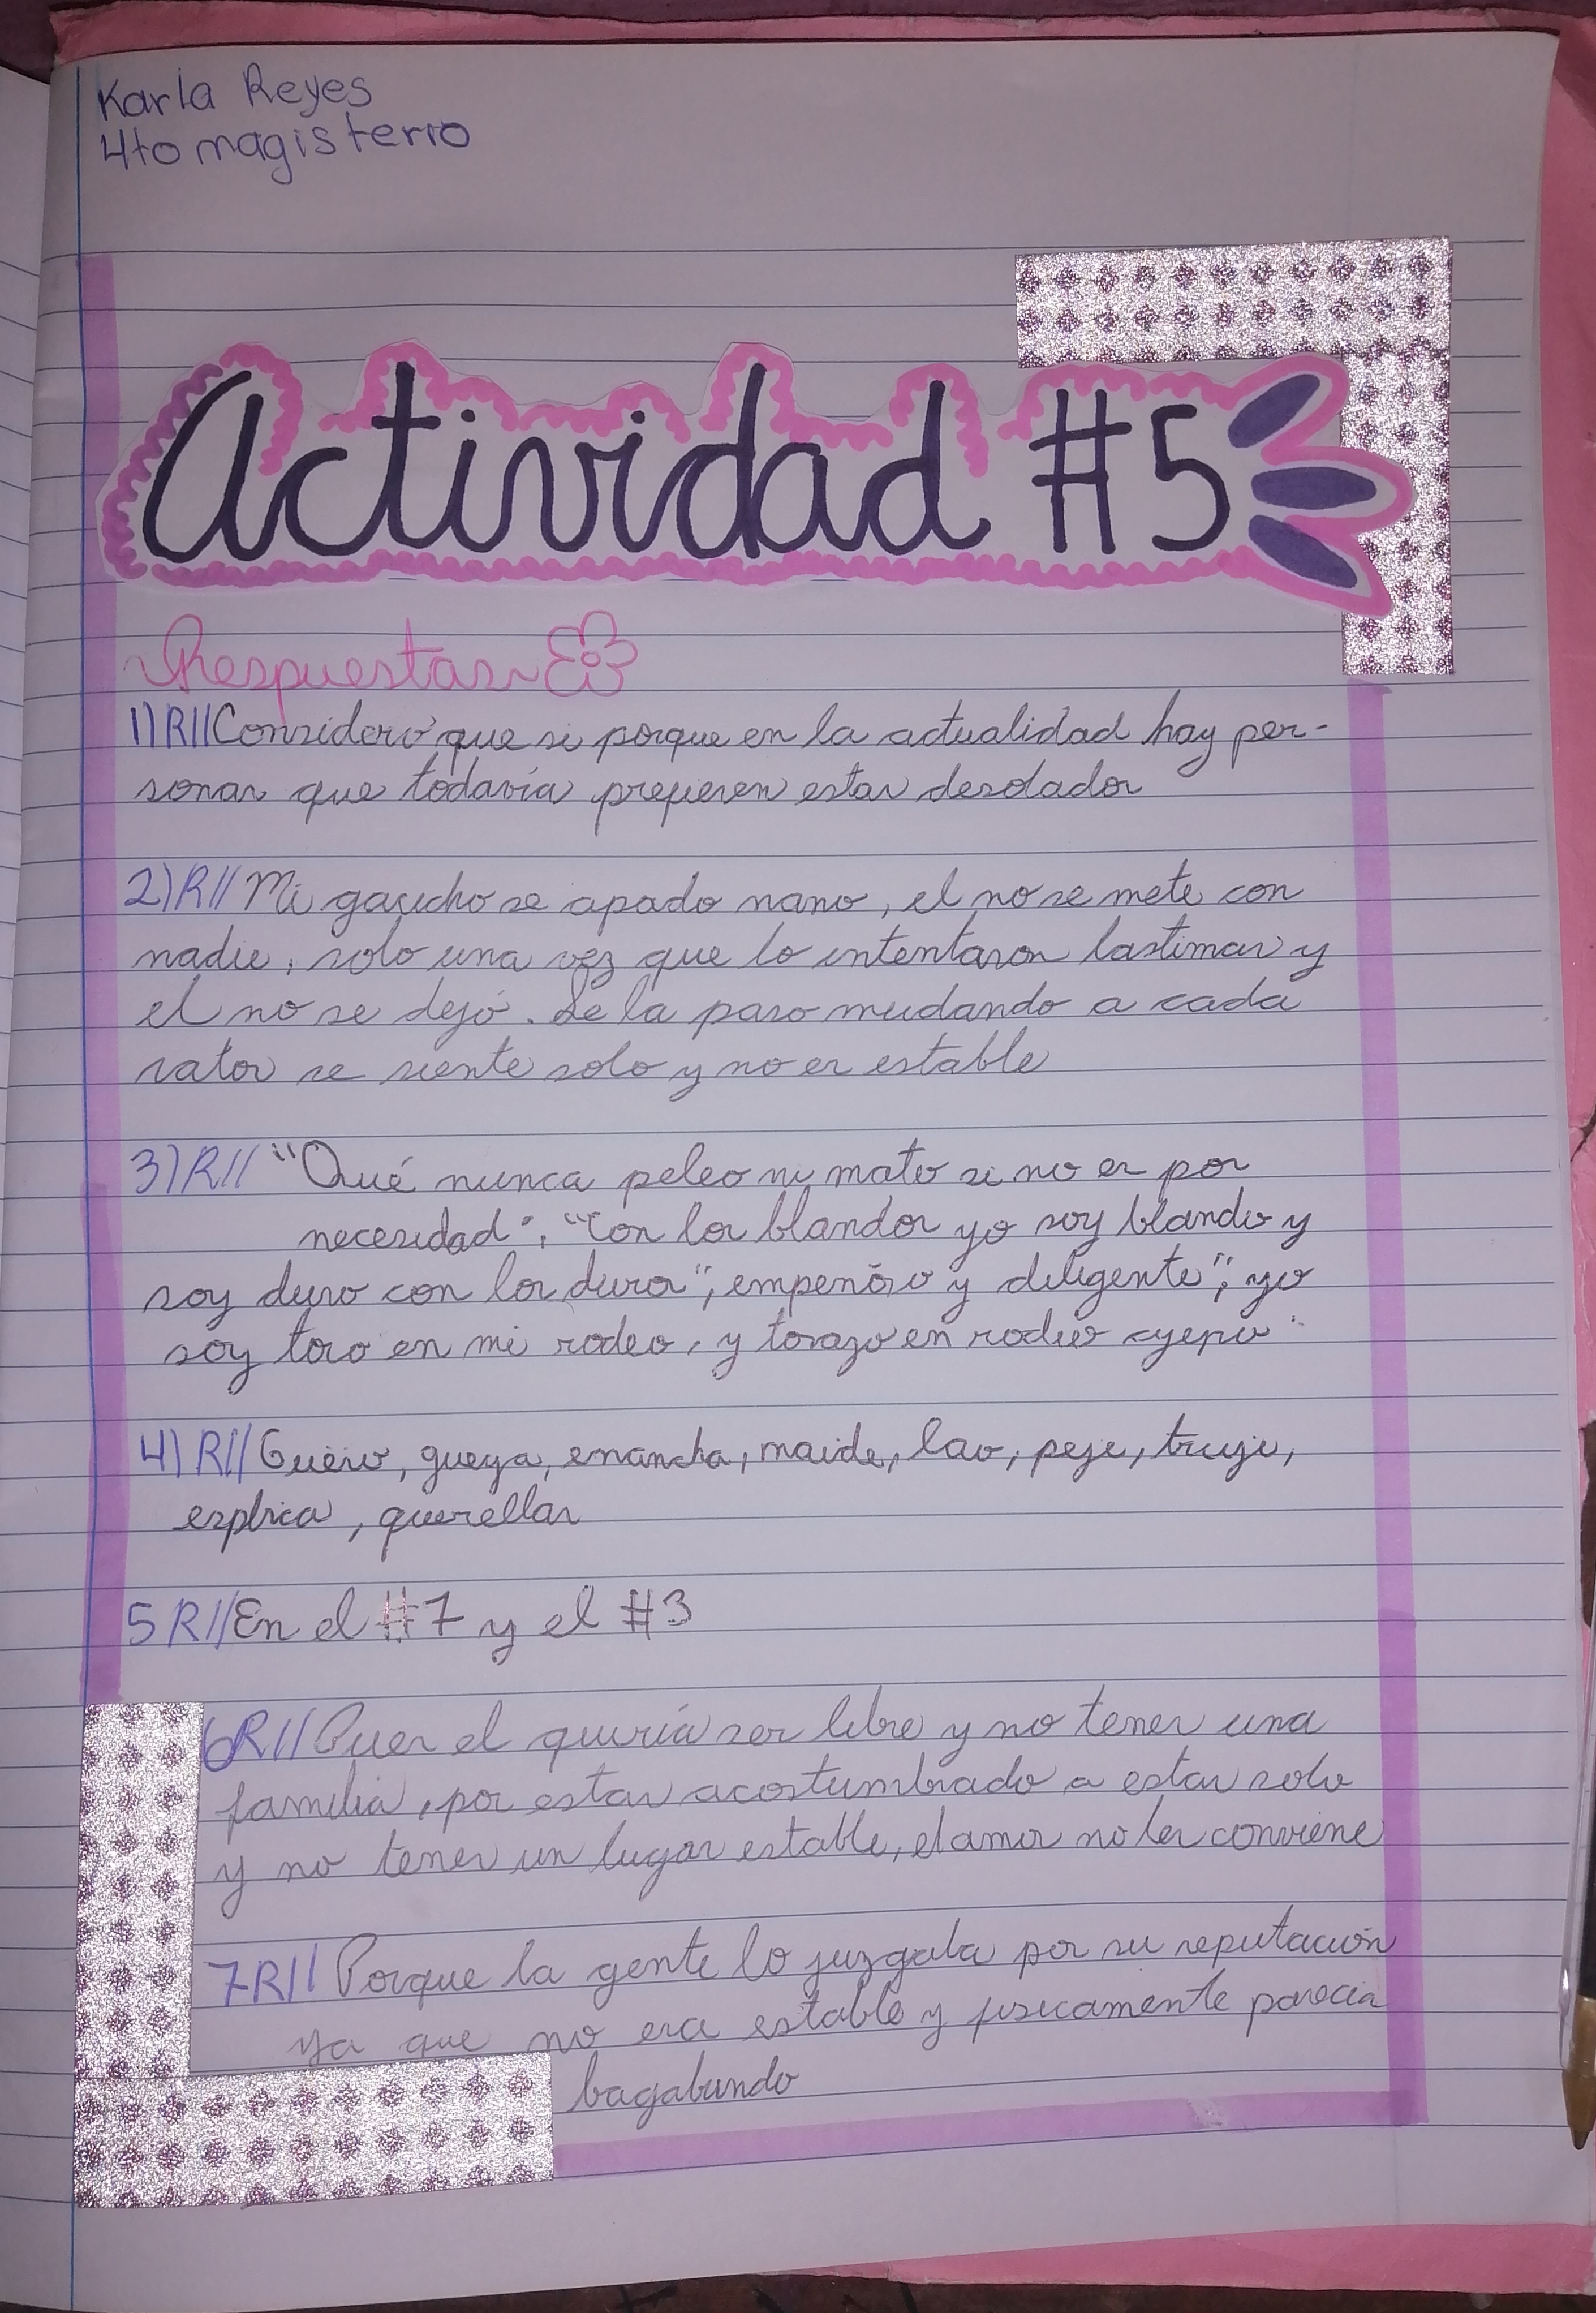 Karla Reyes
4to magisterio
Actividad #5
Respuestas
1) R// Considero que si porque en la actualidad hay per-
sonas que todavía prefieren estar desolados
2) R// Mi gaucho se apado nano, el no se mete con
nadie, solo una vez que lo intentaron lastimar y
el no se dejó. Se la paso mudando a cada
rator se siente solo y no es estable
3) R// "Qué nunca peleo ni mato si no es por
necesidad", "con los blandos yo soy blando y
soy duro con los duros"; empeñoso y diligente"; yo
soy toro en mi rodeo, y torazo en rodeo ajeno
4) R// Güero, gueya, enancha, maide, lao, peje, truje,
esplica, querellar
5 R// En el #7 y el #3
6R// Pues el quería ser libre y no tener una
familia, por estar acostumbrado a estar solo
y no tener un lugar estable, el amor no les conviene
7R// Porque la gente lo juzgaba por su reputación
ya que no era estable y fisicamente parecia
bagabundo